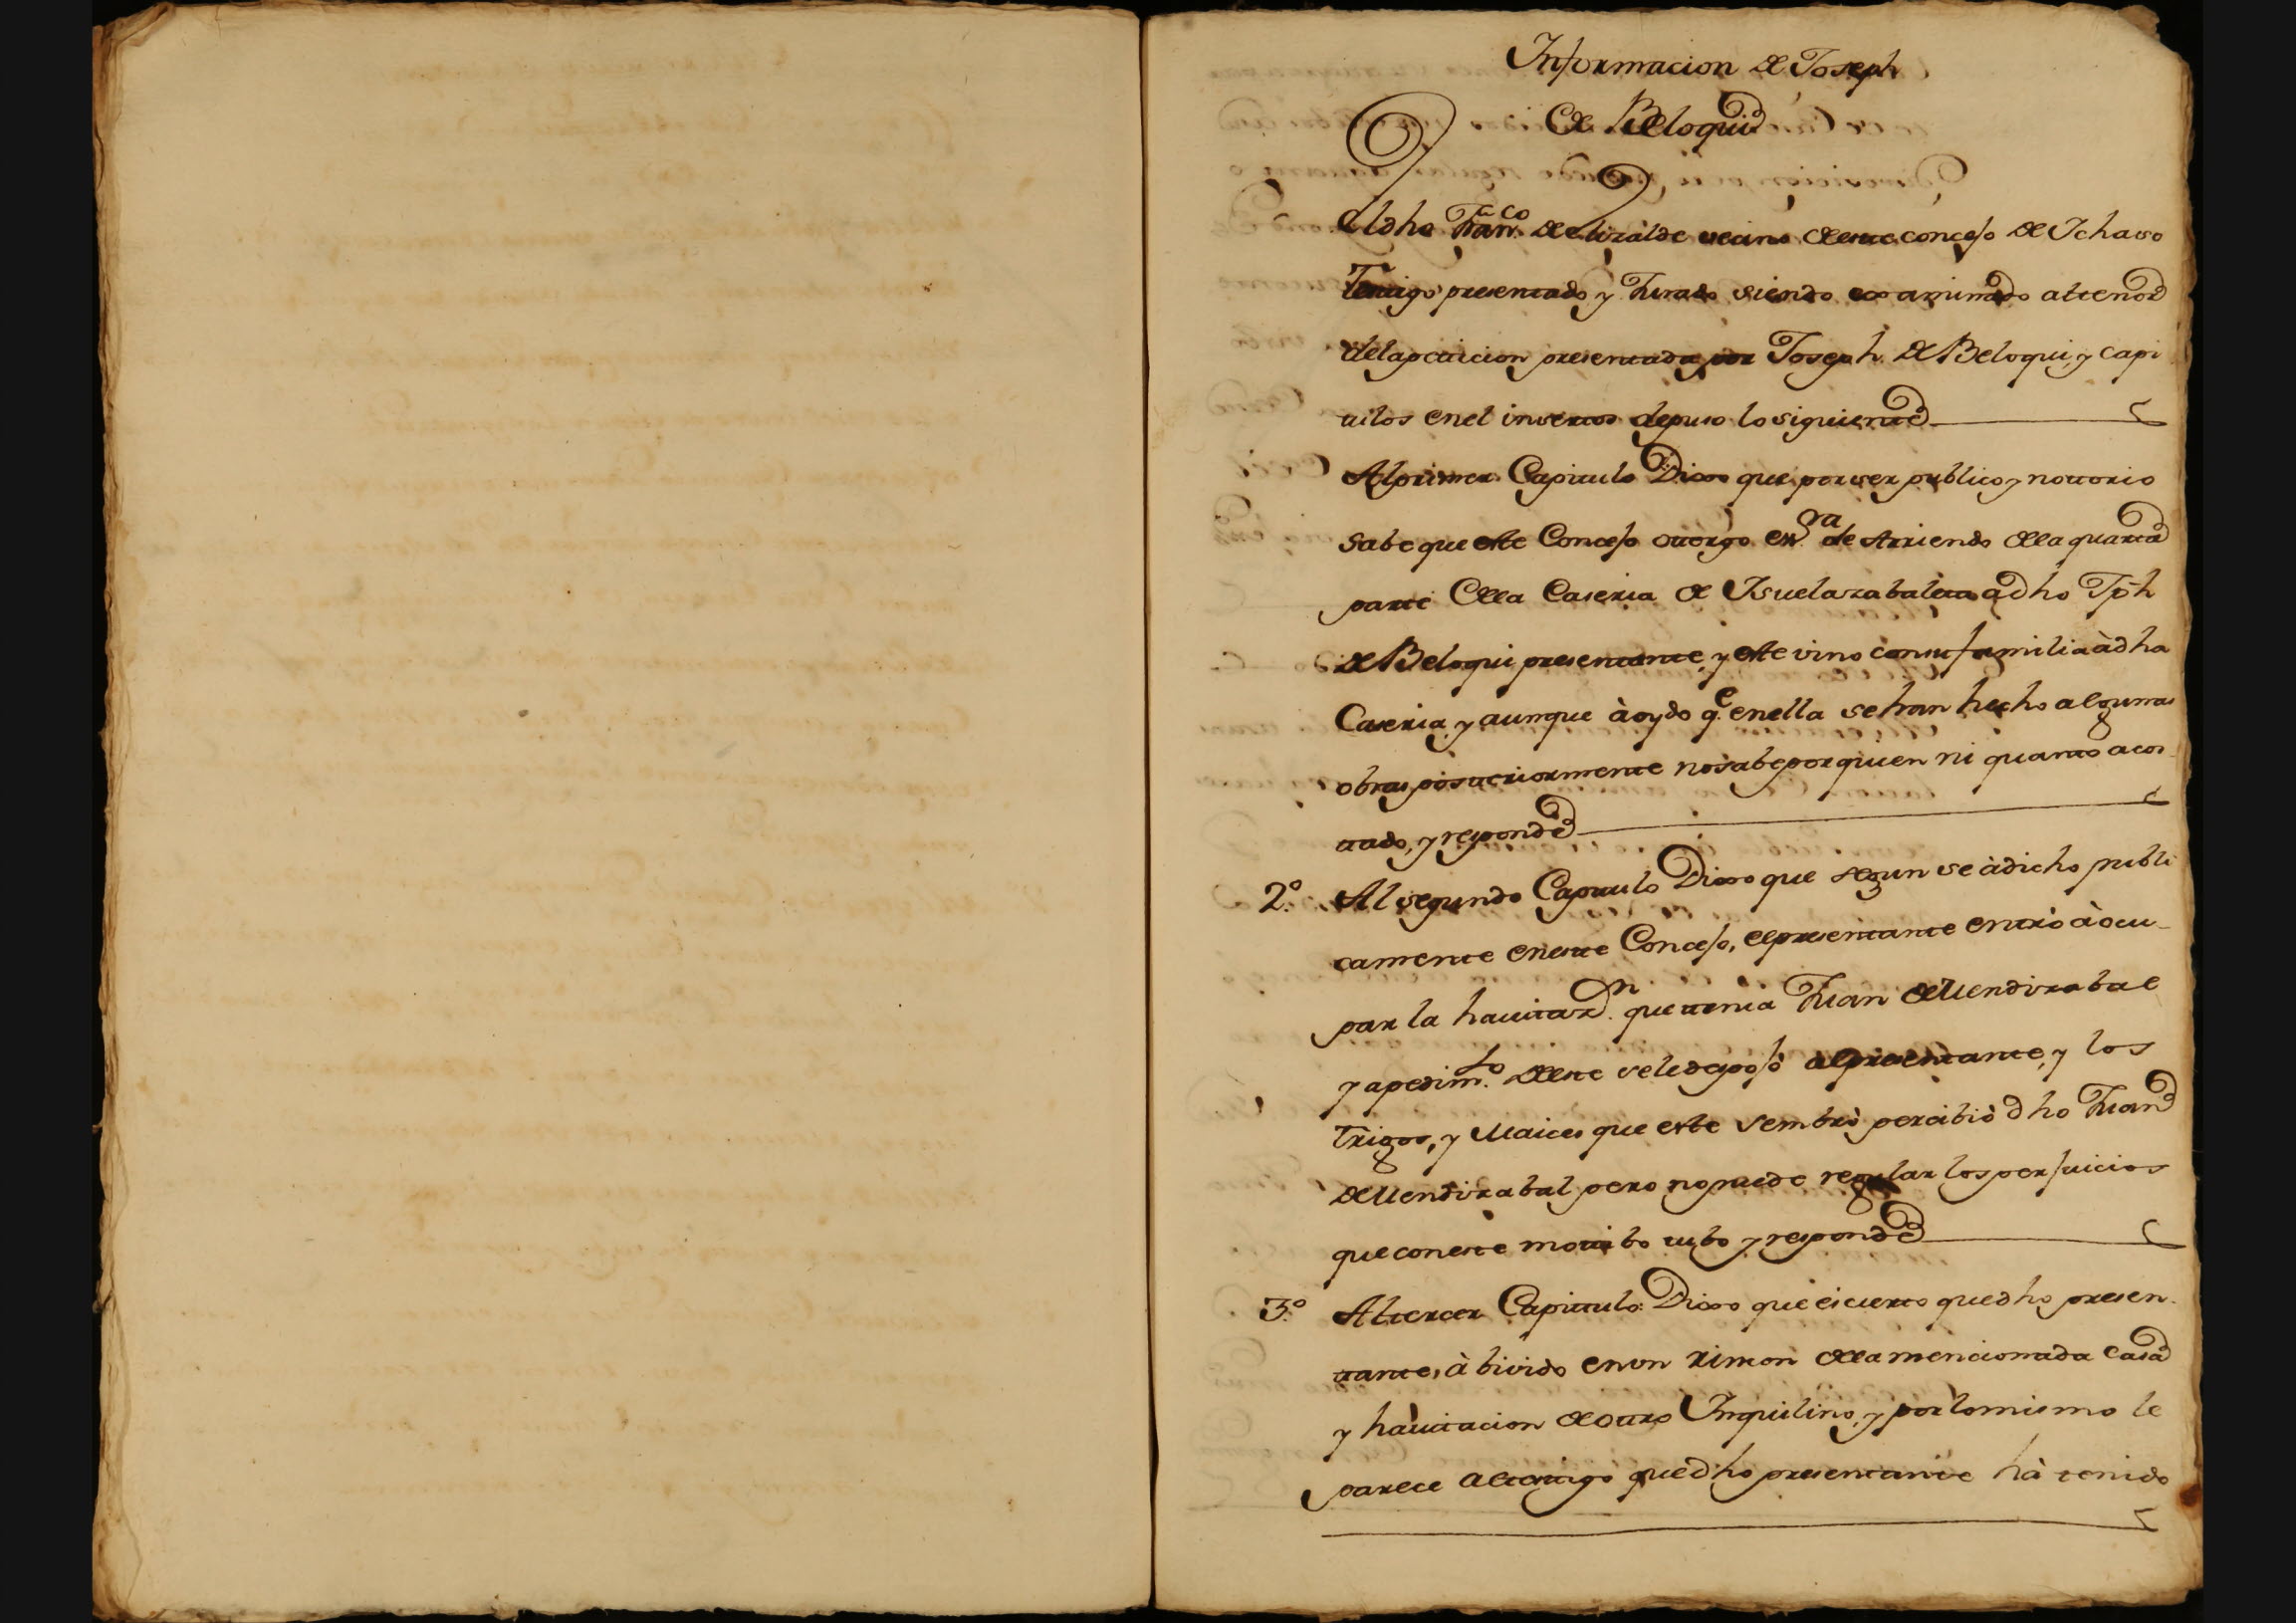 Informacion de Joseph
de Beloqui
El dho Franco. de elizalde vecino deeste concejo de Ichaso
Testigo presentado y Jurado siendo examinado altenor
delapeticion presentada por Joseph de Beloqui, y capi
tulos enel insertos depuso lo siguiente
Alprimer Capitulo Dixo que por ser publico y nottorio
sabe que este Concejo otorgo essra. de Arriendo dela quarta
parte dela Caseria de Ysuelazabaleta a dho Jph
de Beloqui presentante, y este vino consu familia à dha
Caseria, y aunque à oydo qe. enella se han hecho algunas
obras posteriormente nosabe por quien ni quanto a cos
tado, y responde
2º. Al segundo Capitulo Dixo que segun se à dicho publi
camente eneste Concejo, elpresentante entrò à ocu
par la havitazn. que tenia Juan de Mendizabal
y apedimto. deeste sele despojò alpresentante, y los
trigos, y Maices que este sembrò percibiò dho Juan
de Mendizabal pero no puede regular los perjuicios
que coneste motibo tubo y responde
3º. Altercer Capitulo: Dixo que es cierto que dho presen
tante, à bivido en vn rincon dela mencionada casa
y havitacion de otro Ynquilino, y por lo mismo le
parece altestigo que dho presentante hà tenido